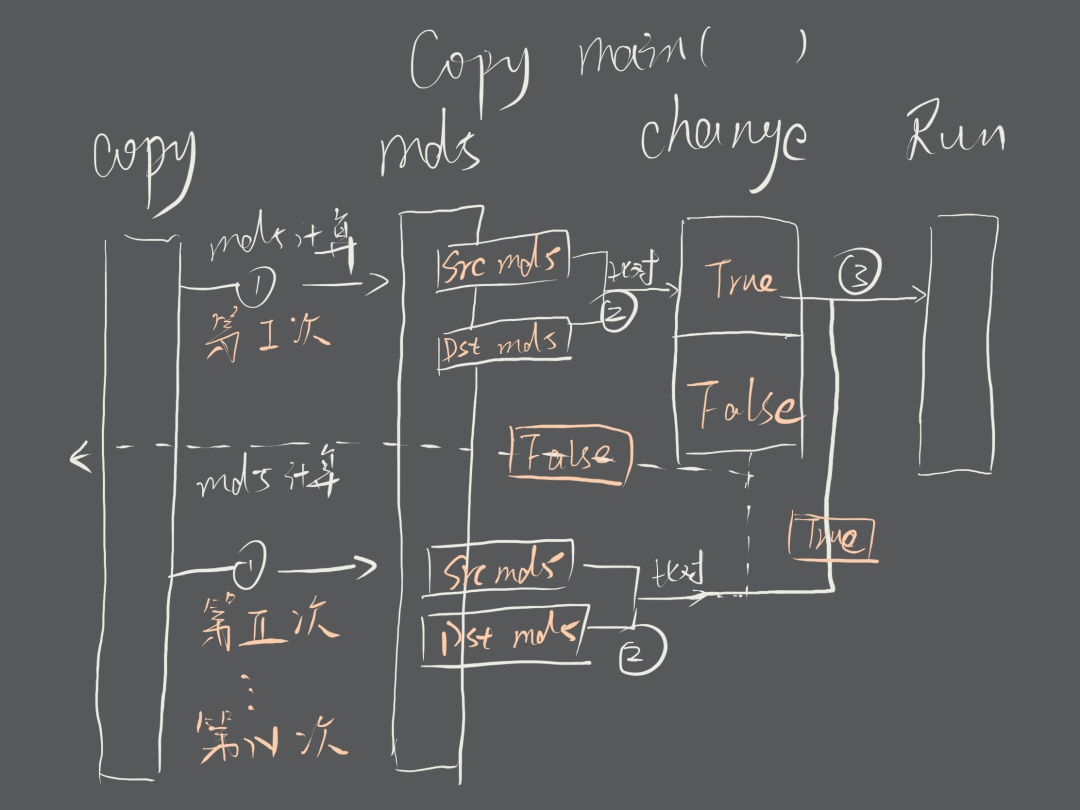 Copy main( )
copy
md5
change
Run
md5计算
①
第I次
Src md5
Dst md5
比对
②
True
False
③
False
md5计算
①
第II次
⋮
第N次
Src md5
Dst md5
比对
②
True